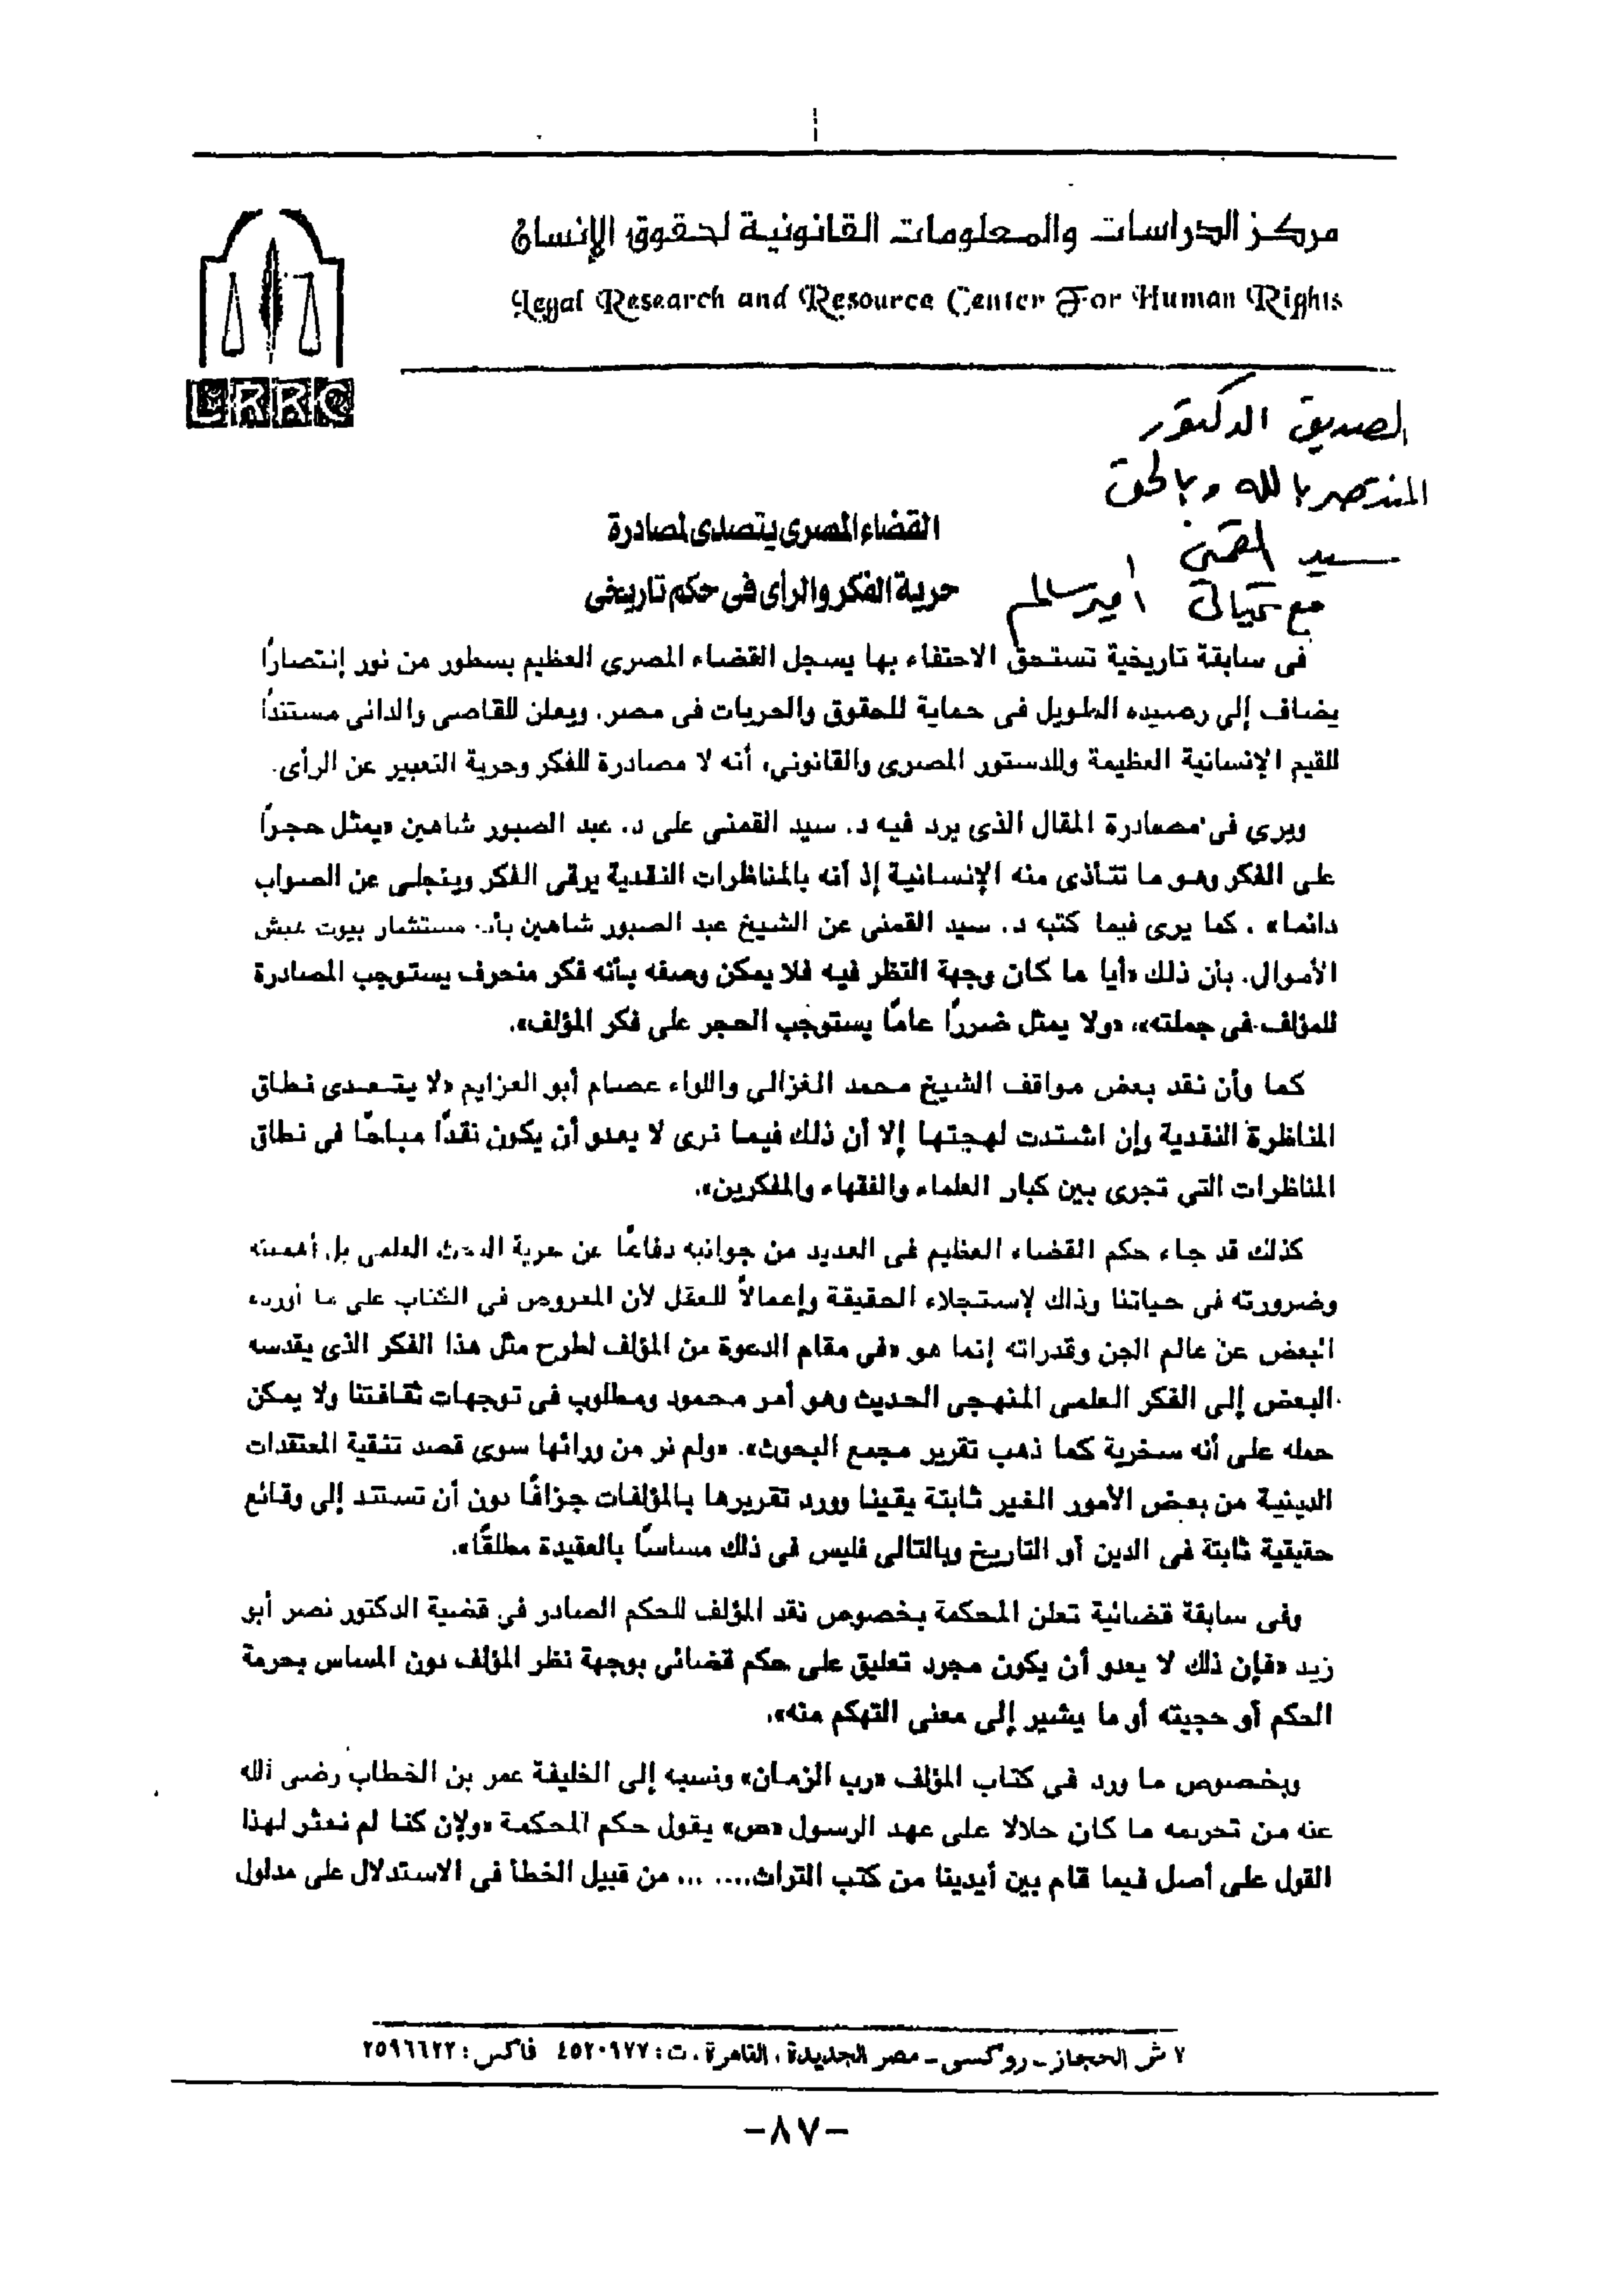 مركز الدراسات والمعلومات القانونية لحقوق الإنسان
Legal Research and Resource Center For Human Rights
LRRC
الصديق الدكتور
المنتصر بالله وبالحق
سيد القمنى
مع تحياتى أمير سالم
القضاء المصرى يتصدى لمصادرة
حرية الفكر والرأى فى حكم تاريخى
فى سابقة تاريخية تستحق الاحتفاء بها يسجل القضاء المصرى العظيم بسطور من نور إنتصارًا
يضاف إلى رصيده الطويل فى حماية للحقوق والحريات فى مصر. ويعلن للقاصى والدانى مستندًا
للقيم الإنسانية العظيمة وللدستور المصرى والقانونى، أنه لا مصادرة للفكر وحرية التعبير عن الرأى.
ويرى فى مصادرة المقال الذى يرد فيه د. سيد القمنى على د. عبد الصبور شاهين «يمثل حجرًا
على الفكر وهو ما تتأذى منه الإنسانية إذ أنه بالمناظرات النقدية يرقى الفكر وينجلى عن الصواب
دائما» . كما يرى فيما كتبه د. سيد القمنى عن الشيخ عبد الصبور شاهين بأنه مستشار بيوت غبش
الأموال. بأن ذلك «أيا ما كان وجهة النظر فيه فلا يمكن وصفه بأنه فكر منحرف يستوجب المصادرة
للمؤلف فى جملته»، «ولا يمثل ضررًا عامًا يستوجب الحجر على فكر المؤلف».
كما وأن نقد بعض مواقف الشيخ محمد الغزالى واللواء عصام أبو العزايم «لا يتعدى نطاق
المناظرة النقدية وإن اشتدت لهجتها إلا أن ذلك فيما نرى لا يعدو أن يكون نقدًا مباحًا فى نطاق
المناظرات التى تجرى بين كبار العلماء والفقهاء والمفكرين».
كذلك قد جاء حكم القضاء العظيم فى العديد من جوانبه دفاعًا عن حرية البحث العلمى بل أهميته
وضرورته فى حياتنا وذلك لإستجلاء الحقيقة وإعمالاً للعقل لأن المعروض فى الكتاب على ما أورده
البعض عن عالم الجن وقدراته إنما هو «فى مقام الدعوة من المؤلف لطرح مثل هذا الفكر الذى يقدسه
البعض إلى الفكر العلمى المنهجى الحديث وهو أمر محمود ومطلوب فى توجهات ثقافتنا ولا يمكن
حمله على أنه سخرية كما ذهب تقرير مجمع البحوث». «ولم نر من ورائها سوى قصد تنقية المعتقدات
الدينية من بعض الأمور الغير ثابتة يقينا وورد تقريرها بالمؤلفات جزافًا دون أن تستند إلى وقائع
حقيقية ثابتة فى الدين أو التاريخ وبالتالى فليس فى ذلك مساسًا بالعقيدة مطلقًا».
وفى سابقة قضائية تعلن المحكمة بخصوص نقد المؤلف للحكم الصادر في قضية الدكتور نصر أبو
زيد «فإن ذلك لا يعدو أن يكون مجرد تعليق على حكم قضائى بوجهة نظر المؤلف دون المساس بحرمة
الحكم أو حجيته أو ما يشير إلى معنى التهكم منه».
وبخصوص ما ورد فى كتاب المؤلف «رب الزمان» ونسبه إلى الخليفة عمر بن الخطاب رضى الله
عنه من تحريمه ما كان حلالا على عهد الرسول «ص» يقول حكم المحكمة «ولإن كنا لم نعثر لهذا
القول على أصل فيما قام بين أيدينا من كتب التراث.... ... من قبيل الخطأ فى الاستدلال على مدلول
٧ ش الحجاز ـ روكسى ـ مصر الجديدة ، القاهرة ، ت : ٤٥٢٠٩٧٧ فاكس : ٢٥٩٦٦٢٢
-٨٧-